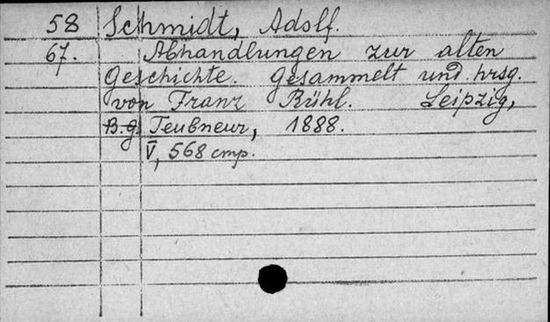 58 Schmidt, Adolf.
67. Abhandlungen zur alten
Geschichte. Gesammelt und hrsg.
von Franz Rühl. Leipzig,
B.g. Teubneur, 1888.
V, 568 cmp.